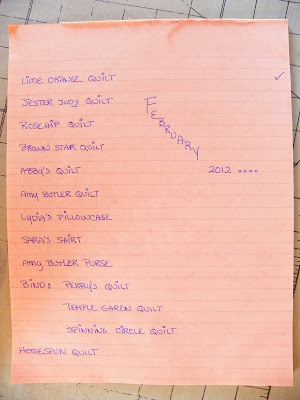 LIME ORANGE QUILT ✓
JESTER JUDY QUILT
FEBRUARY
ROSEHIP QUILT
BROWN STAR QUILT
ABBY'S QUILT
2012 ....
AMY BUTLER QUILT
LYDIA'S PILLOWCASE
SARA'S SHIRT
AMY BUTLER PURSE
BIND: PERRY'S QUILT
TEMPLE GAREN QUILT
SPINNING CIRCLE QUILT
HOMESPUN QUILT